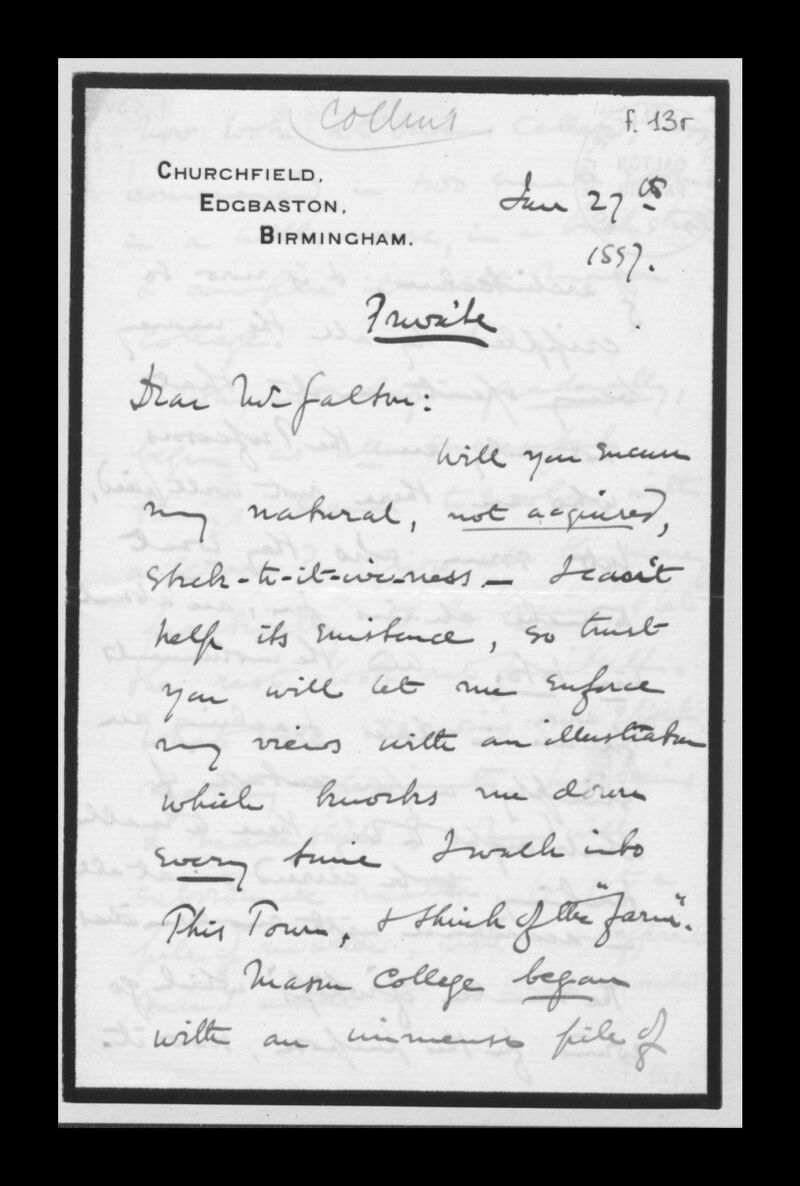 Collins
f. 13r
CHURCHFIELD,
EDGBASTON,
BIRMINGHAM.
Jan 27th
1897.
Private
Dear Mr Galton:
Will you excuse
my natural, not acquired,
Stick-to-it-ive-ness. — I can't
help its existence, so trust
you will let me enforce
my views with an illustration
which knocks me down
every time I walk into
This Town, & think of the "farm".
Mason College began
with an immense pile of